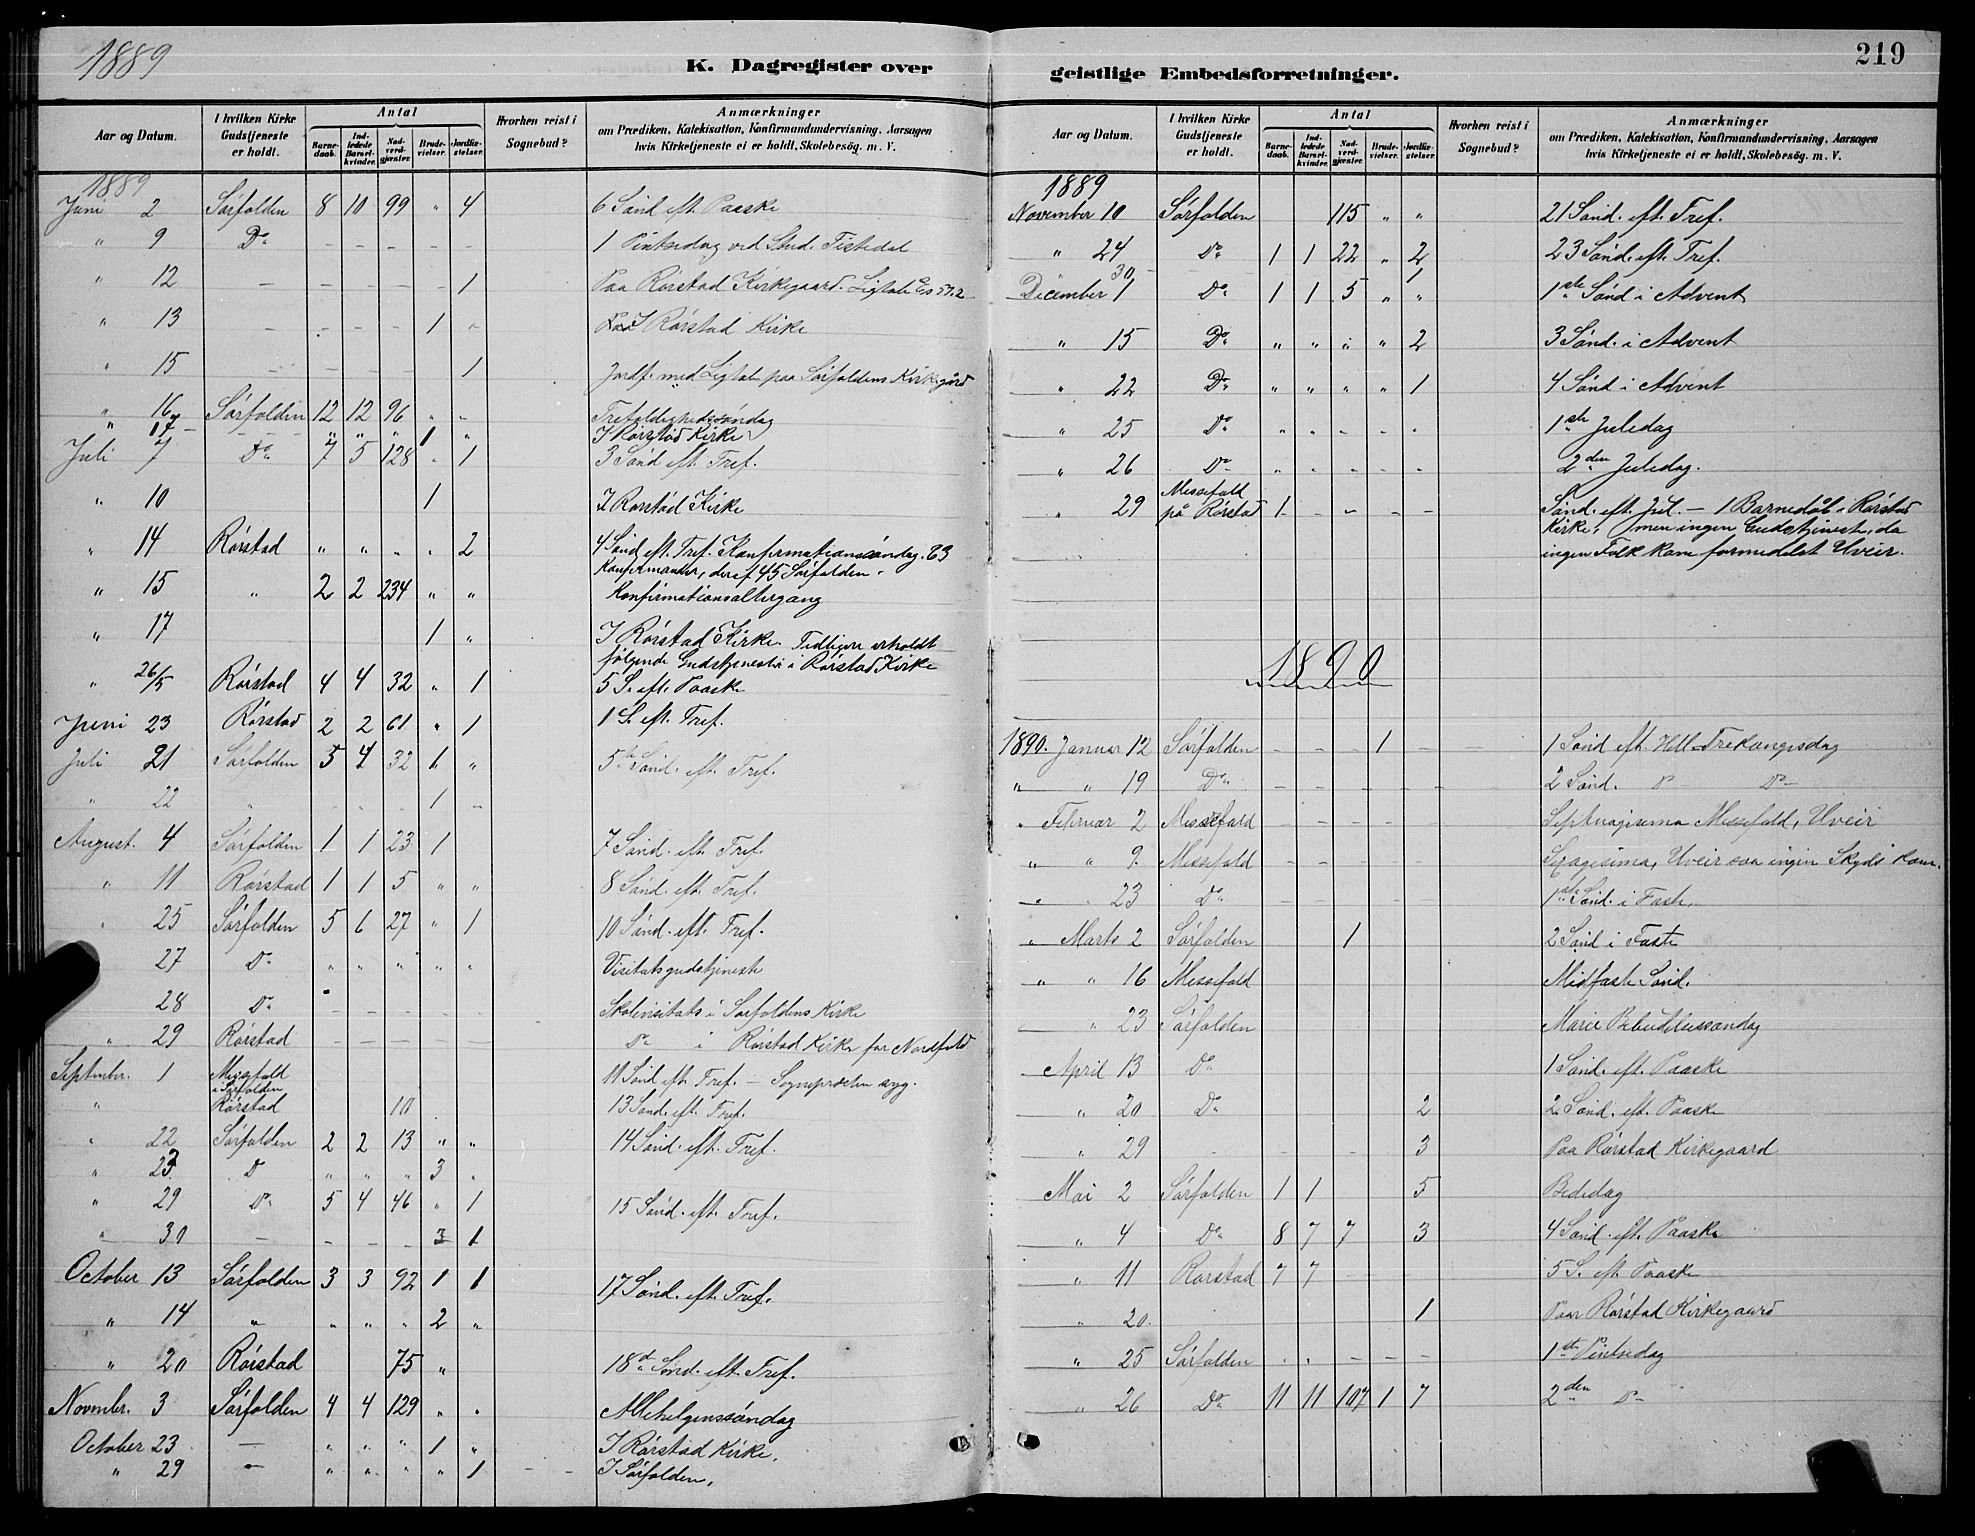 1889
K. Dagregister over
Aar og Datum.
I hvilken Kirke Gudstjeneste er holdt.
Antal
Barnedaab.
Indledede Barselkvinder.
Nadverdgjæster.
Brudevielser.
Jordfæstelser.
Hvorhen reist i Sognebud?
Anmærkninger
om Prædiken, Katekisation, Konfirmandundervisning, Aarsagen
hvis Kirketjeneste ei er holdt, Skolebesøg. m. V.
1889
Juni 2 Sørfolden 8 10 99 " 4 6 Sønd eft. Paaske
" 9 Do - - - - - 1 Pintsedag ved Stud. Tistedal
" 12 - - - - - 1 Paa Rørstad Kirkegaard. Ligtale
" 13 - - - - 1 - I Rørstad Kirke
" 15 - - - - - 1 Jordf. med Ligtale paa Sørfoldens Kirkegård
" 16 Sørfolden 12 12 96 " " Trefoldighedssøndag
" 17 - " " " 1 " I Rørstad Kirke
Juli 7 Do 7 5 128 " 1 3 Sønd eft. Tref.
" 10 1 I Rørstad Kirke
" 14 Rørstad " " " " 2 4 Sønd eft. Tref. Konfirmationssøndag. 83
Konfirmander, deraf 45 Sørfolden.
" 15 " 2 2 234 " " Konfirmationsaltergang
" 17 1 " I Rørstad Kirke. Tidligere erholdt
følgende Gudstjeneste i Rørstad Kirke
" 26/5 Rørstad 4 4 32 " 1 5 S. eft. Paaske
Juni 23 Rørstad 2 2 61 " 1 1 S. eft. Tref.
Juli 21 Sørfolden 5 4 32 1 " 5te Sønd. eft. Tref.
" 22 " 1 "
August. 4 Sørfolden 1 1 23 1 7 Sønd. eft. Tref.
" 11 Rørstad 1 1 5 " " 8 Sønd. eft. Tref.
" 25 Sørfolden 5 6 27 " 1 10 Sønd. eft. Tref.
27 Do " " " " " Visitatsgudstjeneste
28 Do - - - - - Skolevisitats i Sørfoldens Kirke
" 29 Rørstad - - - - - Do i Rørstad Kirke for Nordfold
Septmbr. 1 Missefold i Sørfolden 11 Sønd eft Tref. - Sogneprsten syg.
" Rørstad 10 13 Sønd. eft. Tref.
" 22 Sørfolden 2 2 13 " " 14 Sønd. eft. Tref.
" 23 D " " " 3 "
" 29 Do 5 4 46 " 1 15 Sønd. eft. Tref.
" 30 - - - - 3 1
October 13 Sørfolden 3 3 92 1 1 17 Sønd. eft. Tref.
" 14 " " " " 2 "
" 20 Rørstad 75 " 18d Sønd. eft. Tref.
Novmbr. 3 Sørfolden 4 4 129 " " Allehelgenssøndag
October 23 - " " " 1 " I Rørstad Kirke.
" 29 - " " " " 1 I Sørfolden.
219
geistlige Embedsforretninger.
Aar og Datum.
I hvilken Kirke Gudstjeneste er holdt.
Antal
Barnedaab.
Indledede Barselkvinder.
Nadverdgjæster.
Brudevielser.
Jordfæstelser.
Hvorhen reist i Sognebud?
Anmærkninger
om Prædiken, Katekisation, Konfirmandundervisning, Aarsagen
hvis Kirketjeneste ei er holdt, Skolebesøg. m. V.
1889
November 10 Sørfolden 115 " " 21 Sønd. eft. Tref.
" 24 Do 1 1 22 " 2 23 Sønd. eft. Tref.
30 - 1
December 1 Do 1 1 5 " " 1ste Sønd i Advent
" 15 Do " " " " 2 3 Sønd. i Advent
" 22 Do " " " " 1 4 Sønd i Advent
" 25 Do " " " " " 1ste Juledag
" 26 Do " " " " " 2den Juledag.
" 29 Missefold på Rørstad 1 - - - - Sønd. eft. Jul. - 1 Barnedåb i Rørstad
Kirke, men ingen Gudstjeneste, da
ingen Folk kom formedelst Uveir.
1890
1890. Januar 12 Sørfolden - - - 1 - 1 Sønd eft. Hell. Trekongersdag
" " 19 Do - - - - - 2 Sønd. Do Do
" Februar 2 Missefald Septuagisema Missefold, Uveir
" " 9. Missefald - - - - - Sexagisima, Uveir saa ingen Skyds kom.
" " 23 Do - - - - - 1ste Sønd. i Faste.
" Marts 2 Sørfolden 1 2 Sønd i Faste
" " 16 Missefold Midfaste Sønd.
" 23 Sørfolden Marie Bebudelsessøndag
April 13 Do 1 Sønd. eft. Paaske
" 20 Do 2 2 Sønd. eft. Paaske
" 29 - - - - - 3 Paa Rørstad Kirkegaard
Mai 2 Sørfolden 1 1 5 Bededag
" 4 Do 8 7 7 3 4 Sønd. eft. Paaske
" 11 Rørstad 7 7 - - - 5 S. eft Paaske
" 20. 1 Paa Rørstad Kirkegaard
" 25 Sørfolden - - - - - 1ste Pintsedag
" 26 Do 11 11 107 1 7 2den Do